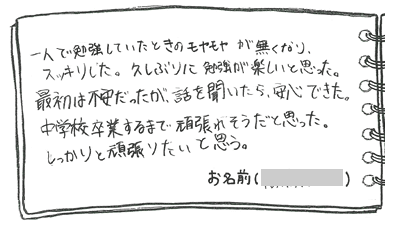 一人で勉強していたときのモヤモヤが無くなり、
スッキリした。久しぶりに勉強が楽しいと思った。
最初は不安だったが、話を聞いたら、安心できた。
中学校卒業するまで頑張れそうだと思った。
しっかりと頑張りたいと思う。
お名前( )